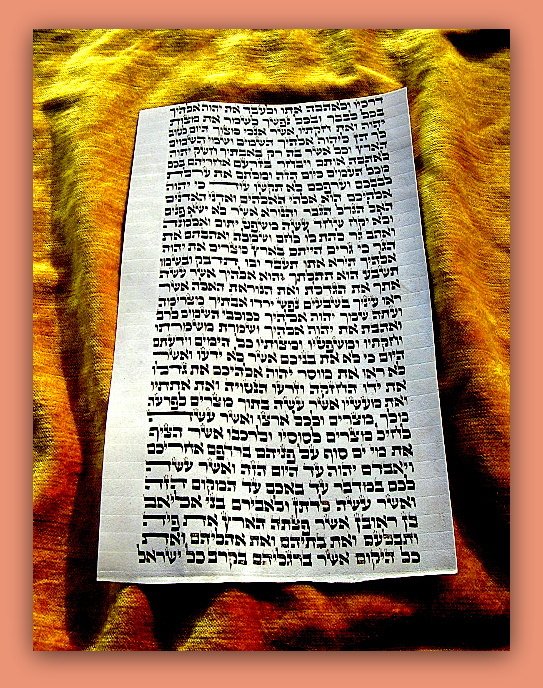 דרכיו ולאהבה אתו ולעבד את יהוה אלהיך
בכל לבבך ובכל נפשך לשמר את מצות
יהוה ואת חקתיו אשר אנכי מצוך היום לטוב
לך הן ליהוה אלהיך השמים ושמי השמים
הארץ וכל אשר בה רק באבתיך חשק יהוה
לאהבה אותם ויבחר בזרעם אחריהם בכם
מכל העמים כיום הזה ומלתם את ערלת
לבבכם וערפכם לא תקשו עוד כי יהוה
אלהיכם הוא אלהי האלהים ואדני האדנים
האל הגדל הגבר והנורא אשר לא ישא פנים
ולא יקח שחד עשה משפט יתום ואלמנה
ואהב גר לתת לו לחם ושמלה ואהבתם את
הגר כי גרים הייתם בארץ מצרים את יהוה
אלהיך תירא אתו תעבד ובו תדבק ובשמו
תשבע הוא תהלתך והוא אלהיך אשר עשה
אתך את הגדלת ואת הנוראת האלה אשר
ראו עיניך בשבעים נפש ירדו אבתיך מצרימה
ועתה שמך יהוה אלהיך ככוכבי השמים לרב
ואהבת את יהוה אלהיך ושמרת משמרתו
וחקתיו ומשפטיו ומצותיו כל הימים וידעתם
היום כי לא את בניכם אשר לא ידעו ואשר
לא ראו את מוסר יהוה אלהיכם את גדלו
את ידו החזקה וזרעו הנטויה ואת אתתיו
ואת מעשיו אשר עשה בתוך מצרים לפרעה
מלך מצרים ולכל ארצו ואשר עשה
לחיל מצרים לסוסיו ולרכבו אשר הציף
את מי ים סוף על פניהם ברדפם אחריכם
ויאבדם יהוה עד היום הזה ואשר עשה
לכם במדבר עד באכם עד המקום הזה
ואשר עשה לדתן ולאבירם בני אליאב
בן ראובן אשר פצתה הארץ את פיה
ותבלעם ואת בתיהם ואת אהליהם ואת
כל היקום אשר ברגליהם בקרב כל ישראל